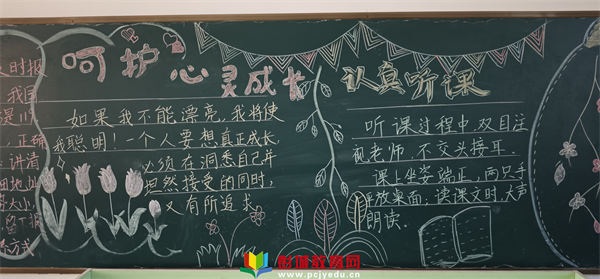 时报
我国
正确
讲清
大小
呵护心灵成长
如果我不能漂亮,我将使
我聪明!一个人要想真正成长,
必须在洞悉自己并
坦然接受的同时,
又有所追求
认真听课
听课过程中,双目注
视老师,不交头接耳.
课上坐姿端正,两只手
平放桌面;读课文时大声
朗读.
教育网
www.pcjyedu.cn